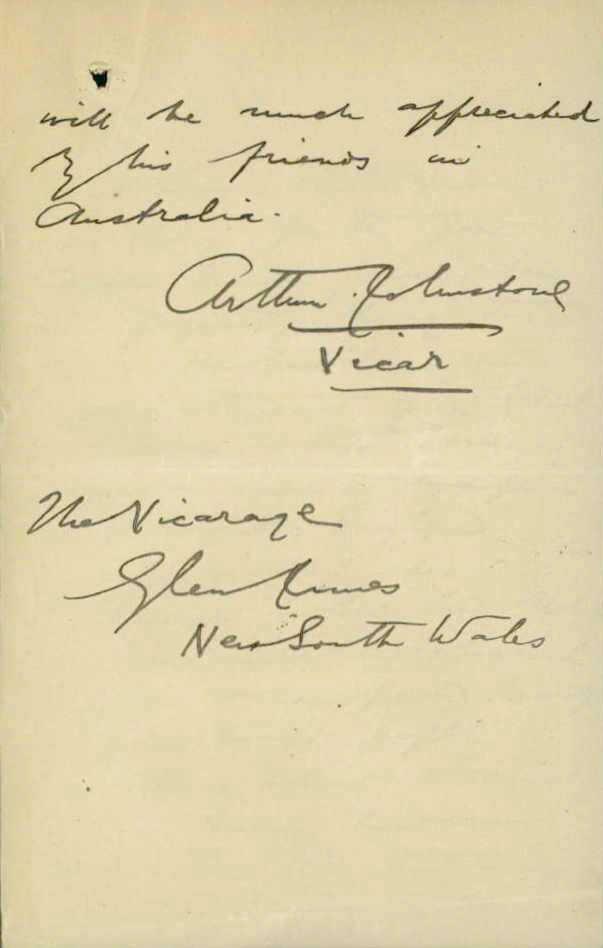 will be much appreciated
by his friends in
Australia.
Arthur Johnstone
Vicar
The Vicarage
Glen Innes
New South Wales